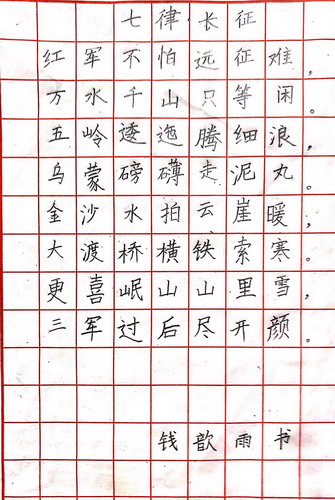 七律长征
红军不怕远征难，
万水千山只等闲。
五岭逶迤腾细浪，
乌蒙磅礴走泥丸。
金沙水拍云崖暖，
大渡桥横铁索寒。
更喜岷山山里雪，
三军过后尽开颜。
钱歆雨书